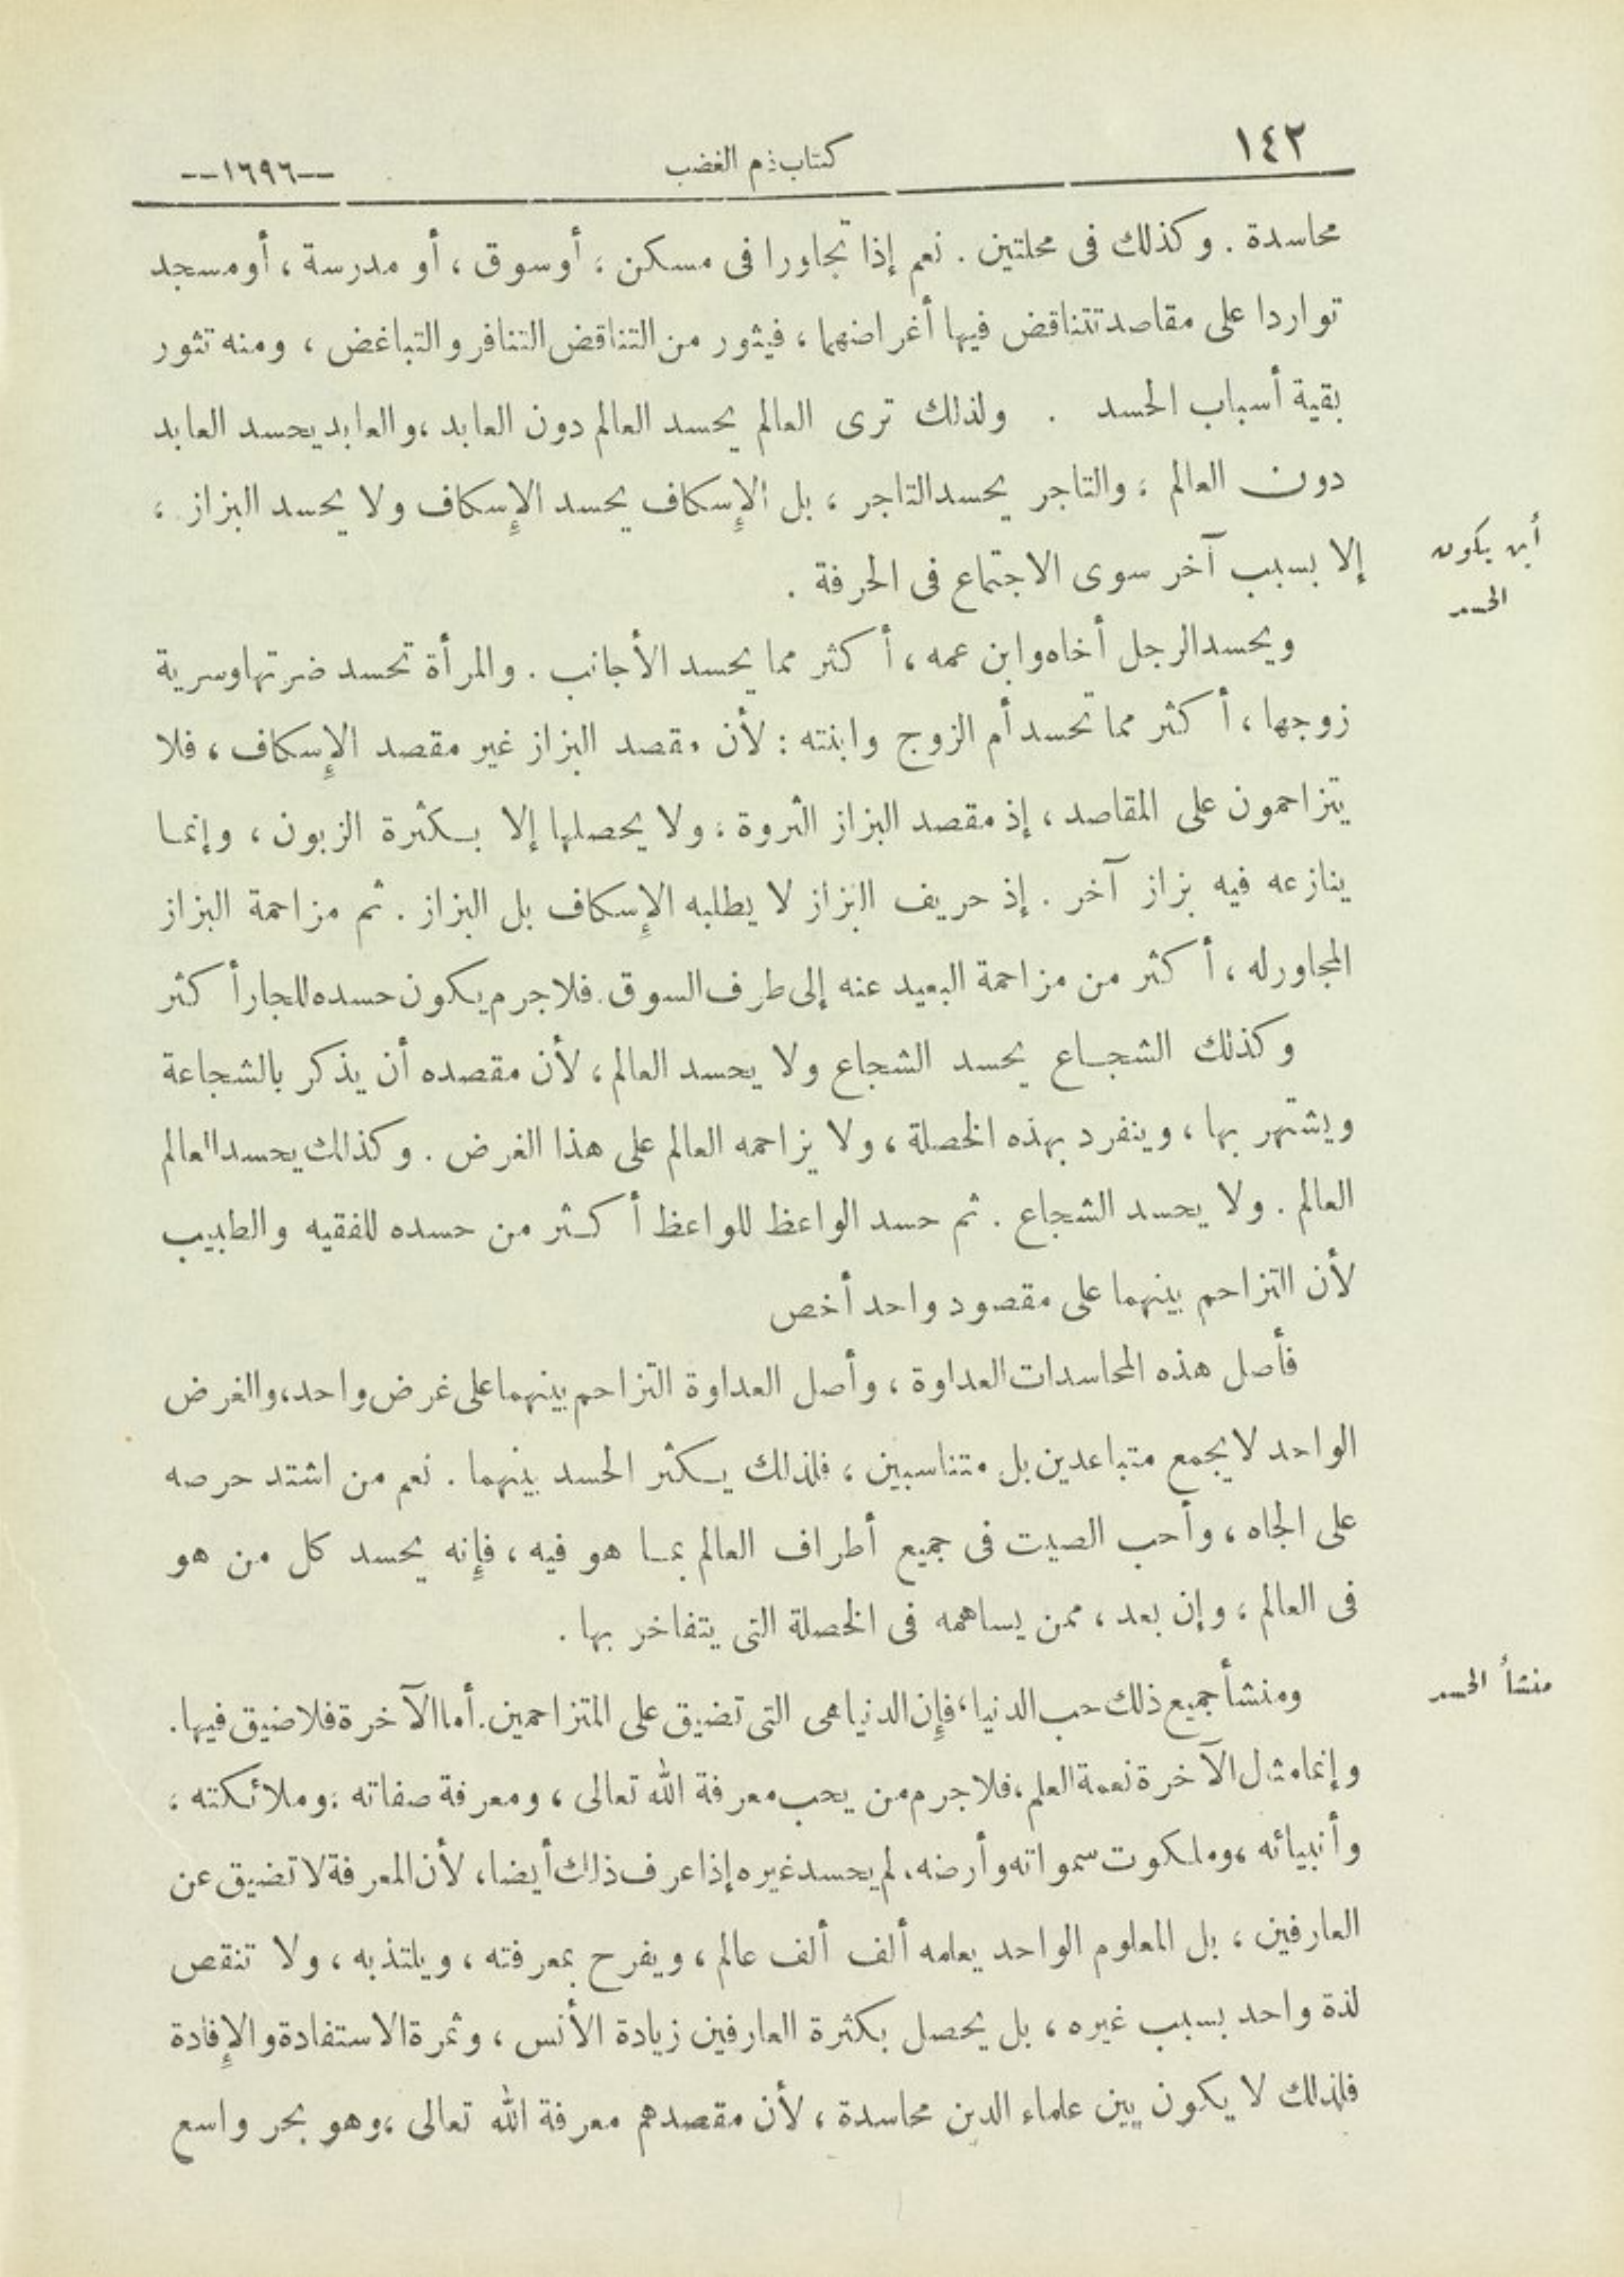 ١٤٢
كتاب ذم الغضب
--١٦٩٦--
محاسدة . وكذلك فى محلتين . نعم إذا تجاورا فى مسكن ، أو سوق ، أو مدرسة ، أو مسجد
تواردا على مقاصد تتناقض فيها أغراضهما ، فيثور من التناقض التنافر والتباغض ، ومنه تثور
بقية أسباب الحسد . ولذلك ترى العالم يحسد العالم دون العابد ، والعابد يحسد العابد
دون العالم ، والتاجر يحسد التاجر ، بل الإسكاف يحسد الإسكاف ولا يحسد البزاز ،
إلا بسبب آخر سوى الاجتماع فى الحرفة .
أين يكون
الحسد
ويحسد الرجل أخاه وابن عمه ، أكثر مما يحسد الأجانب . والمرأة تحسد ضرتها وسرية
زوجها ، أكثر مما تحسد أم الزوج وابنته : لأن مقصد البزاز غير مقصد الإسكاف ، فلا
يتزاحمون على المقاصد ، إذ مقصد البزاز الثروة ، ولا يحصلها إلا بكثرة الزبون ، وإنما
ينازعه فيه بزاز آخر . إذ حريف البزاز لا يطلبه الإسكاف بل البزاز . ثم مزاحمة البزاز
المجاور له ، أكثر من مزاحمة البعيد عنه إلى طرف السوق . فلا جرم يكون حسده للجار أكثر
وكذلك الشجاع يحسد الشجاع ولا يحسد العالم ، لأن مقصده أن يذكر بالشجاعة
ويشتهر بها ، وينفرد بهذه الخصلة ، ولا يزاحمه العالم على هذا الغرض . وكذلك يحسد العالم
العالم . ولا يحسد الشجاع . ثم حسد الواعظ للواعظ أكثر من حسده للفقيه والطبيب
لأن التزاحم بينهما على مقصود واحد أخص
فأصل هذه المحاسدات العداوة ، وأصل العداوة التزاحم بينهما على غرض واحد ، والغرض
الواحد لا يجمع متباعدين بل متناسبين ، فلذلك يكثر الحسد بينهما . نعم من اشتد حرصه
على الجاه ، وأحب الصيت فى جميع أطراف العالم بما هو فيه ، فإنه يحسد كل من هو
فى العالم ، وإن بعد ، ممن يساهمه فى الخصلة التى يتفاخر بها .
منشأ الحسد
ومنشأ جميع ذلك حب الدنيا ، فإن الدنيا هى التى تضيق على المتزاحمين . أما الآخرة فلا ضيق فيها .
وإنما مثل الآخرة نعمة العلم ، فلا جرم من يحب معرفة الله تعالى ، ومعرفة صفاته ، وملائكته ،
وأنبيائه ، وملكوت سمواته وأرضه ، لم يحسد غيره إذا عرف ذلك أيضا ، لأن المعرفة لا تضيق عن
العارفين ، بل المعلوم الواحد يعلمه ألف ألف عالم ، ويفرح بمعرفته ، ويلتذ به ، ولا تنقص
لذة واحد بسبب غيره ، بل يحصل بكثرة العارفين زيادة الأنس ، وثمرة الاستفادة والإفادة
فلذلك لا يكون بين علماء الدين محاسدة ، لأن مقصدهم معرفة الله تعالى ، وهو بحر واسع